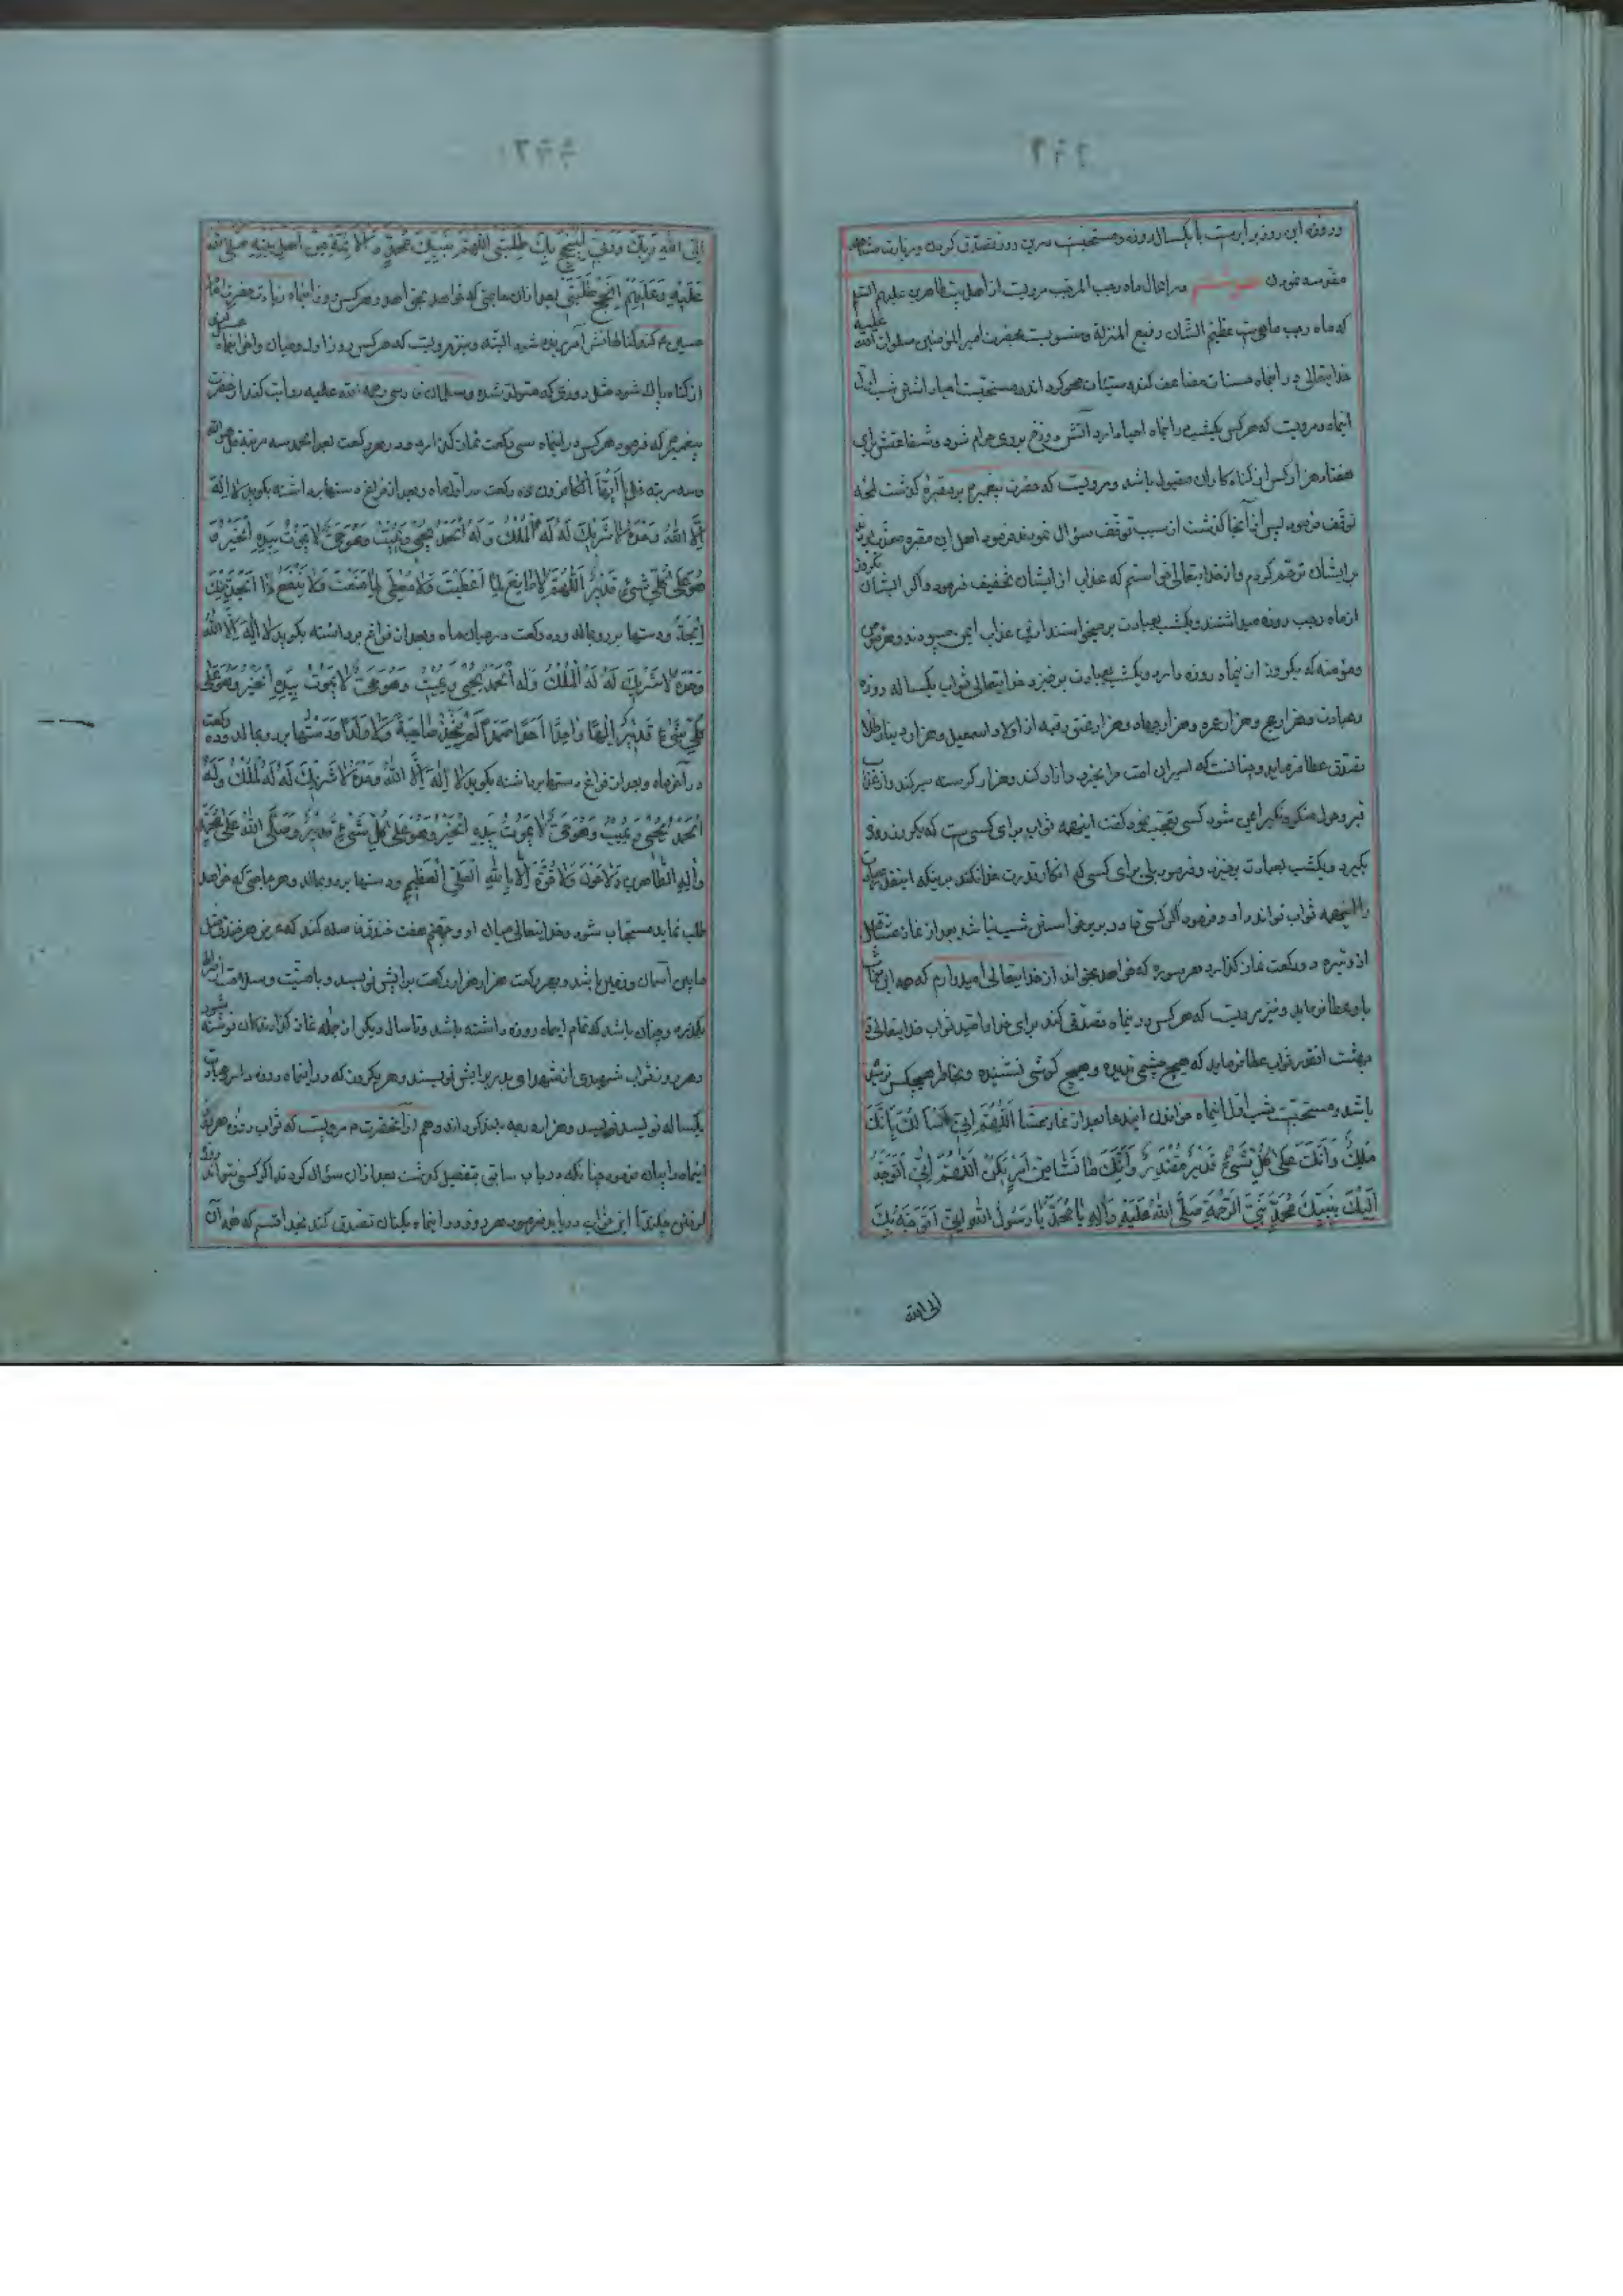 و روزه این روز برابریست با یکسال روزه و مستحبست درین روز تصدق کردن و زیارت مشاهد
مقدسه نمودن در اعمال ماه رجب المرجب مرویست از اهل بیت طاهرین علیهم السلم
که ماه رجب ماهیست عظیم الشان رفیع المنزلة و منسوبست بحضرت امیر المؤمنین صلوات الله علیه
خدایتعالی در اینماه حسنات مضاعف کند و سیئات محو کرداند و مستحبست احیا داشتن شب اول
اینماه و مرویست که هرکس یکشب در اینماه احیا دارد آتش دوزخ بروی حرام شود و شفاعتش برای
هفتاد هزار کس از کناه کاران مقبول باشد و مرویست که حضرت پیغمبر بر مقبرۀ کذشت لحۀ
توقف فرمود پس از آنجا کذشت از سبب توقف سؤال نمودند فرمود اهل این مقبره معذب بودند
بر ایشان ترحم کردم و از خدایتعالی خواستم که عذاب از ایشان تخفیف فرمود و اکر ایشان یکروز
از ماه رجب روزه میداشتند و یکشب بعبادت برمیخواستند ازین عذاب ایمن میبودند و هر مؤمن
و مؤمنه که یکروز ازینماه روزه دارد و یکشب بعبادت برخیزد خدایتعالی ثواب یکساله روزه
و عبادت و هزار حج و هزار عمره و هزار جهاد و هزار عتق رقبه از اولاد اسمعیل و هزار دینار طلا
تصدق عطا فرماید و چنانست که اسیران امت مرا بخرد و آزاد کند و هزار کرسنه سیر کند و از عذاب
قبر و هول منکر و نکیر ایمن شود کسی تعجب نمود کفت اینهمه ثواب برای کسی است که یکروز روزه
بکیرد و یکشب بعبادت برخیزد فرمود بلی برای کسی که انکار قدرت خدا نکند بر اینکه اینقدر عبادت
را اینهمه ثواب تواند داد و فرمود اکر کسی قادر بر برخواستن شب نباشد بعد از نماز عشا قبل
از وتیره دو رکعت نماز کذارد هر سوره که خواهد بخواند از خدایتعالی امیدوارم که همه این ثواب
باو عطا فرماید و نیز مرویست که هرکس در اینماه تصدقی کند برای خدا باقید ثواب خدایتعالی در
بهشت انقدر ثواب عطا فرماید که هیچ چشمی ندیده و هیچ کوشی نشنیده و بخاطر هیچکس نرسیده
باشد و مستحبست شب اول اینماه خواندن ایندعا بعد از نماز عشا اَللّٰهُمَّ اِنّی اَسْاَلُکَ بِاَنَّکَ
مَلِکٌ وَاَنَّکَ عَلیٰ کُلِّ شَیْءٍ قَدیرٌ مُقْتَدِرٌ وَاَنَّکَ مٰا تَشٰاءُ مِنْ اَمْرٍ یَکُنْ اَللّٰهُمَّ اِنّی اَتَوَجَّهُ
اِلَیْکَ بِنَبِیِّکَ مُحَمَّدٍ نَبِیِّ الرَّحْمَةِ صَلَّی اللهُ عَلَیْهِ وَاٰلِهِ یٰا مُحَمَّدُ یٰا رَسُولَ اللهِ اِنّی اَتَوَجَّهُ بِکَ
الی الله
اِلَی اللهِ رَبِّکَ وَرَبّی لِیُنْجِحَ بِکَ طَلِبَتی اَللّٰهُمَّ بِنَبِیِّکَ مُحَمَّدٍ وَالْاَئِمَّةِ مِنْ اَهْلِ بَیْتِهِ صَلَّی اللهُ
عَلَیْهِ وَعَلَیْهِمْ اَنْجِحْ طَلِبَتی بعد از ان حاجتی که خواهد بخواهد و هرکس روز اینماه زیارت حضرت امام
حسین ع کند کناهانش آمرزیده شود البته و نیز مرویست که هرکس روز اول و میان و آخر اینماه غسل کند
از کناه پاک شود مثل روزی که متولد شده و سلمان فارسی رحمه الله علیه روایت کند از حضرت
پیغمبر که فرمود هرکس در اینماه سی رکعت نماز کذارد و در هر رکعت بعد از حمد سه مرتبه قل هو الله
و سه مرتبه قُلْ یٰا اَیُّهَا الْکٰافِرُونَ ده رکعت در اول ماه و بعد از فراغ دستها برداشته بکوید لا اِلٰهَ
اِلَّا اللهُ وَحْدَهُ لٰا شَریکَ لَهُ لَهُ الْمُلْکُ وَلَهُ الْحَمْدُ یُحْیی وَیُمیتُ وَهُوَ حَیٌّ لٰا یَمُوتُ بِیَدِهِ الْخَیْرُ وَ
هُوَ عَلیٰ کُلِّ شَیْءٍ قَدیرٌ اَللّٰهُمَّ لٰا مٰانِعَ لِمٰا اَعْطَیْتَ وَلٰا مُعْطِیَ لِمٰا مَنَعْتَ وَلٰا یَنْفَعُ ذَا الْجَدِّ مِنْکَ
الْجَدُّ و دستها بر رو بمالد و ده رکعت در میان ماه و بعد از فراغ برداشته بکوید لٰا اِلٰهَ اِلَّا اللهُ
وَحْدَهُ لٰا شَریکَ لَهُ لَهُ الْمُلْکُ وَلَهُ الْحَمْدُ یُحْیی وَیُمیتُ وَهُوَ حَیٌّ لٰا یَمُوتُ بِیَدِهِ الْخَیْرُ وَهُوَ عَلیٰ
کُلِّ شَیْءٍ قَدیرٌ اِلٰهًا وٰاحِدًا اَحَدًا صَمَدًا لَمْ یَتَّخِذْ صٰاحِبَةً وَلٰا وَلَدًا و دستها بر رو بمالد و ده رکعت
در آخر ماه و بعد از فراغ دستها برداشته بکوید لٰا اِلٰهَ اِلَّا اللهُ وَحْدَهُ لٰا شَریکَ لَهُ لَهُ الْمُلْکُ وَلَهُ
الْحَمْدُ یُحْیی وَیُمیتُ وَهُوَ حَیٌّ لٰا یَمُوتُ بِیَدِهِ الْخَیْرُ وَهُوَ عَلیٰ کُلِّ شَیْءٍ قَدیرٌ وَصَلَّی اللهُ عَلیٰ مُحَمَّدٍ
وَاٰلِهِ الطّٰاهِرینَ وَلٰا حَوْلَ وَلٰا قُوَّةَ اِلّٰا بِاللهِ الْعَلِیِّ الْعَظیمِ و دستها بر رو بمالد و هر حاجتی که خواهد
طلب نماید مستجاب شود و خدایتعالی میان او و جهنم هفت خندق فاصله کند که عرض هر خندق مثل
مابین آسمان و زمین باشد و بهر رکعت هزار هزار رکعت برایش نویسد و با صحت و سلامت از صراط
بکذرد و چنان باشد که تمام اینماه روزه داشته باشد و تا سال دیکر از جمله نماز کذارندکان نوشته شود
و هر روز ثواب شهیدی از شهدای بدر برایش نویسند و هر یکروزی که در اینماه روزه دارد عبادت
یکساله نویسند و هزار درجه بلند کرداند و هم از آنحضرت مرویست که ثواب روزه هر روز
اینماه را بیان فرمود چنانکه در باب سابق بتفصیل کذشت بعد از آن سؤال کردند اکر کسی نتواند روزه
کرفتن چکند تا این ثواب دریابد فرمود هر روز در اینماه یکنان تصدق کند بخدا قسم که همه آن